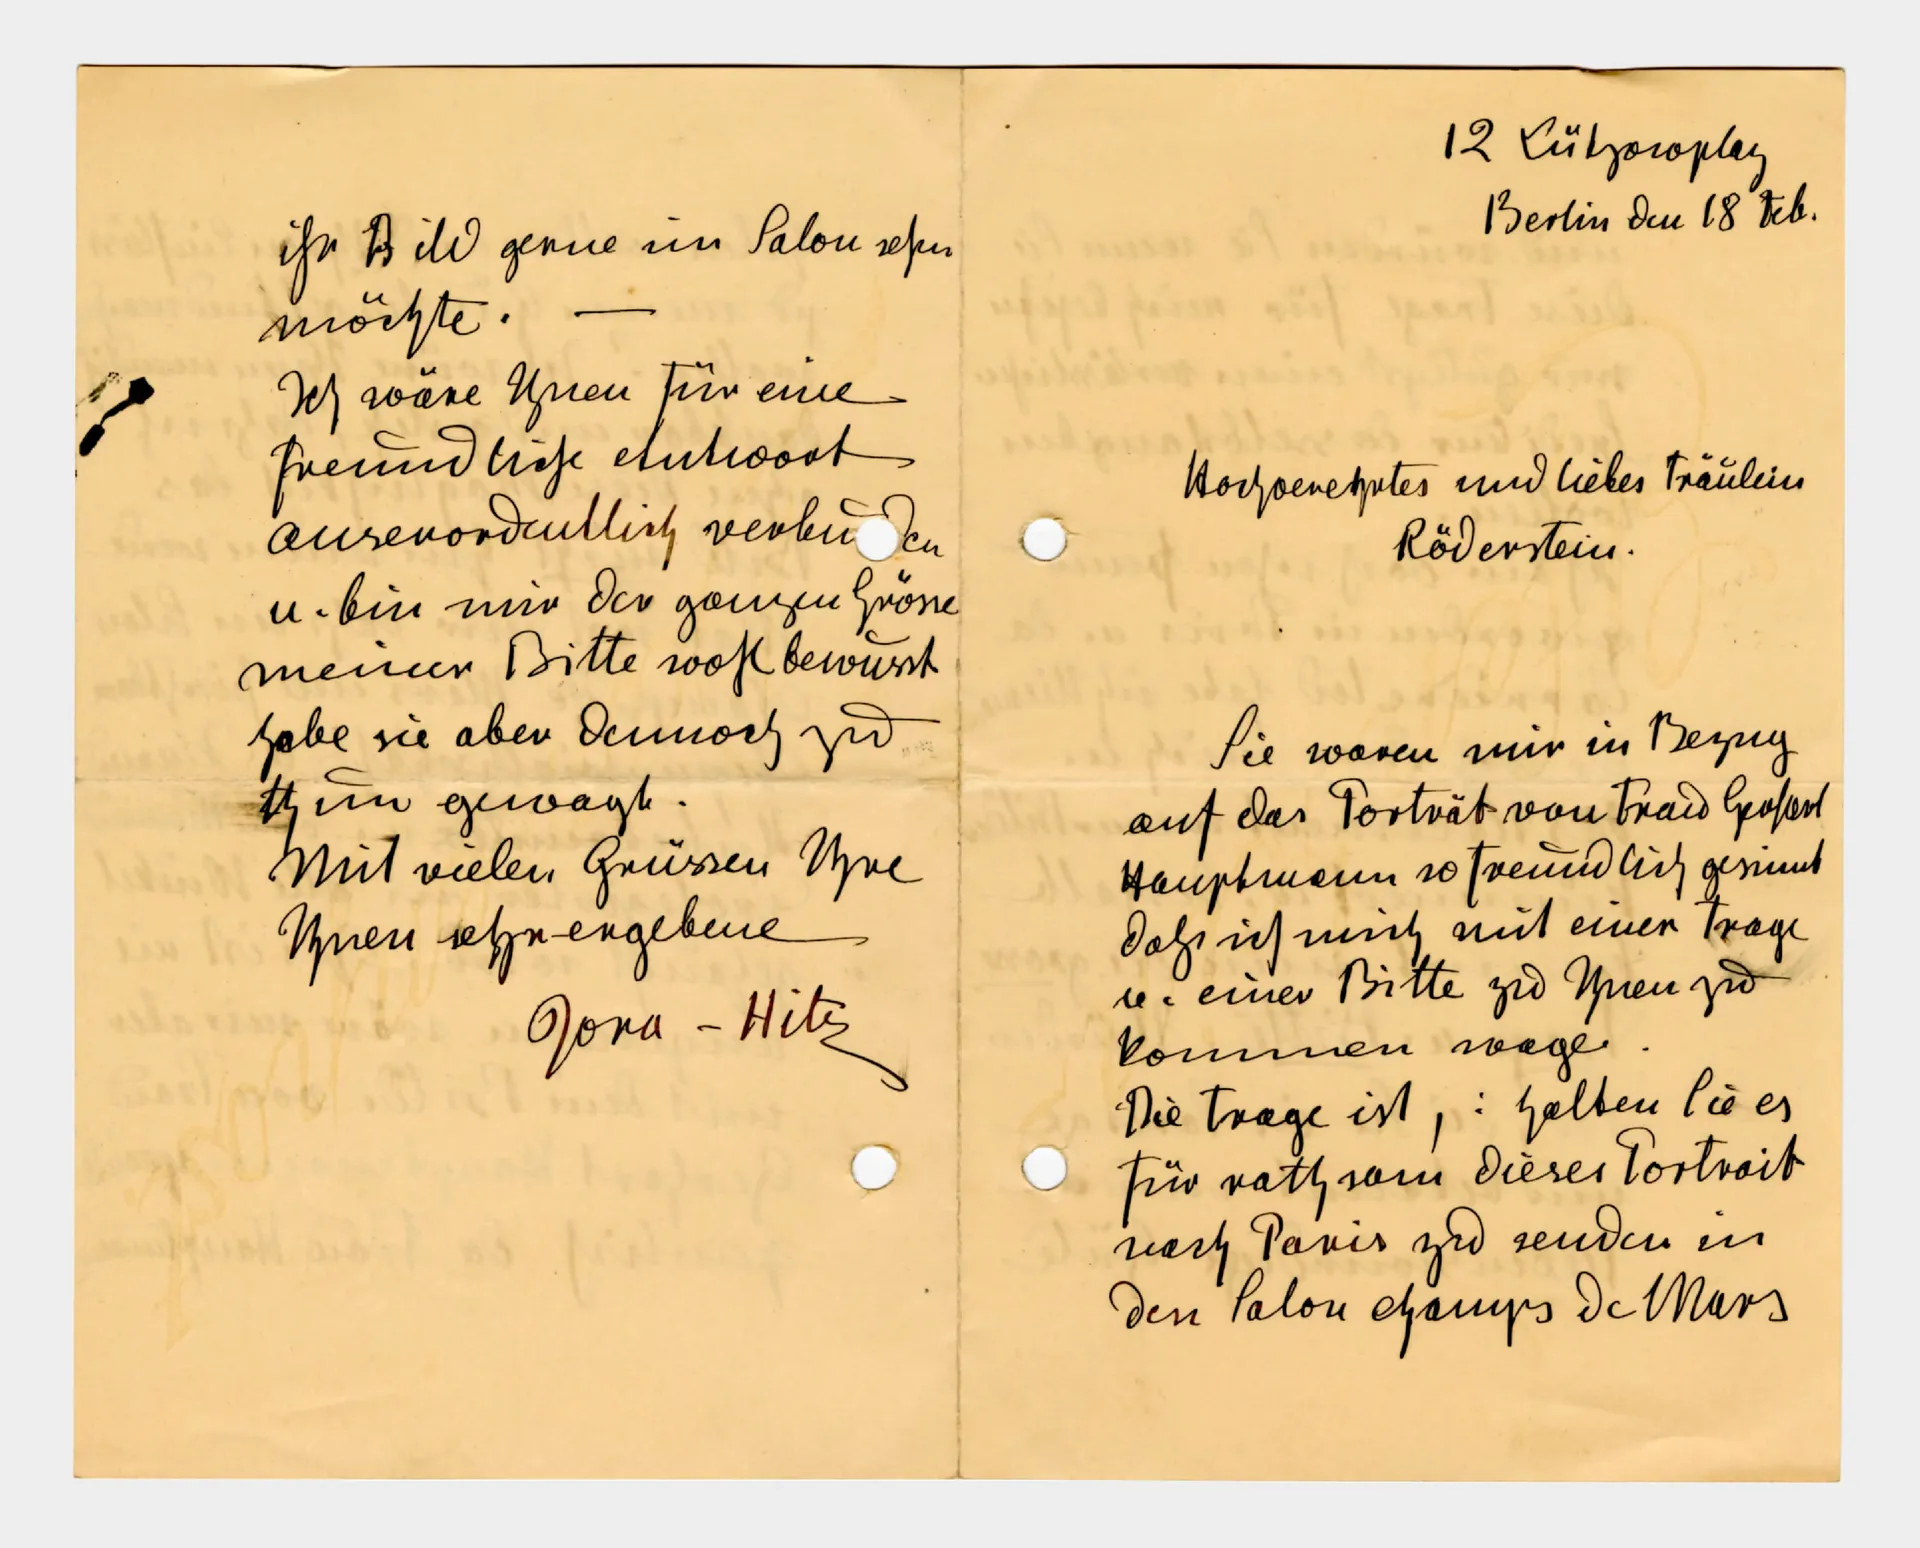 12 Lützowplatz
Berlin den 18 Feb.
Hochverehrtes und liebes Fräulein
Röderstein.
Sie waren mir in Bezug
auf das Porträt von Frau Gerhart
Hauptmann so freundlich gesinnt
dahs ich mich mit einer Frage
u. einer Bitte zu Ihnen zu
kommen wage.
Die Frage ist, : halten Sie es
für rathsam dieses Portrait
nach Paris zu senden in
den Salon champs de Mars
ihr Bild gerne im Salon sehen
möchte. —
Ich wäre Ihnen für eine
freundliche Antwort
auserordentlich verbunden
u. bin mir der ganzen Grösse
meiner Bitte wohl bewusst
habe sie aber dennoch zu
thun gewagt.
Mit vielen Grüssen Ihre
Ihnen sehr ergebene
Dora – Hitz